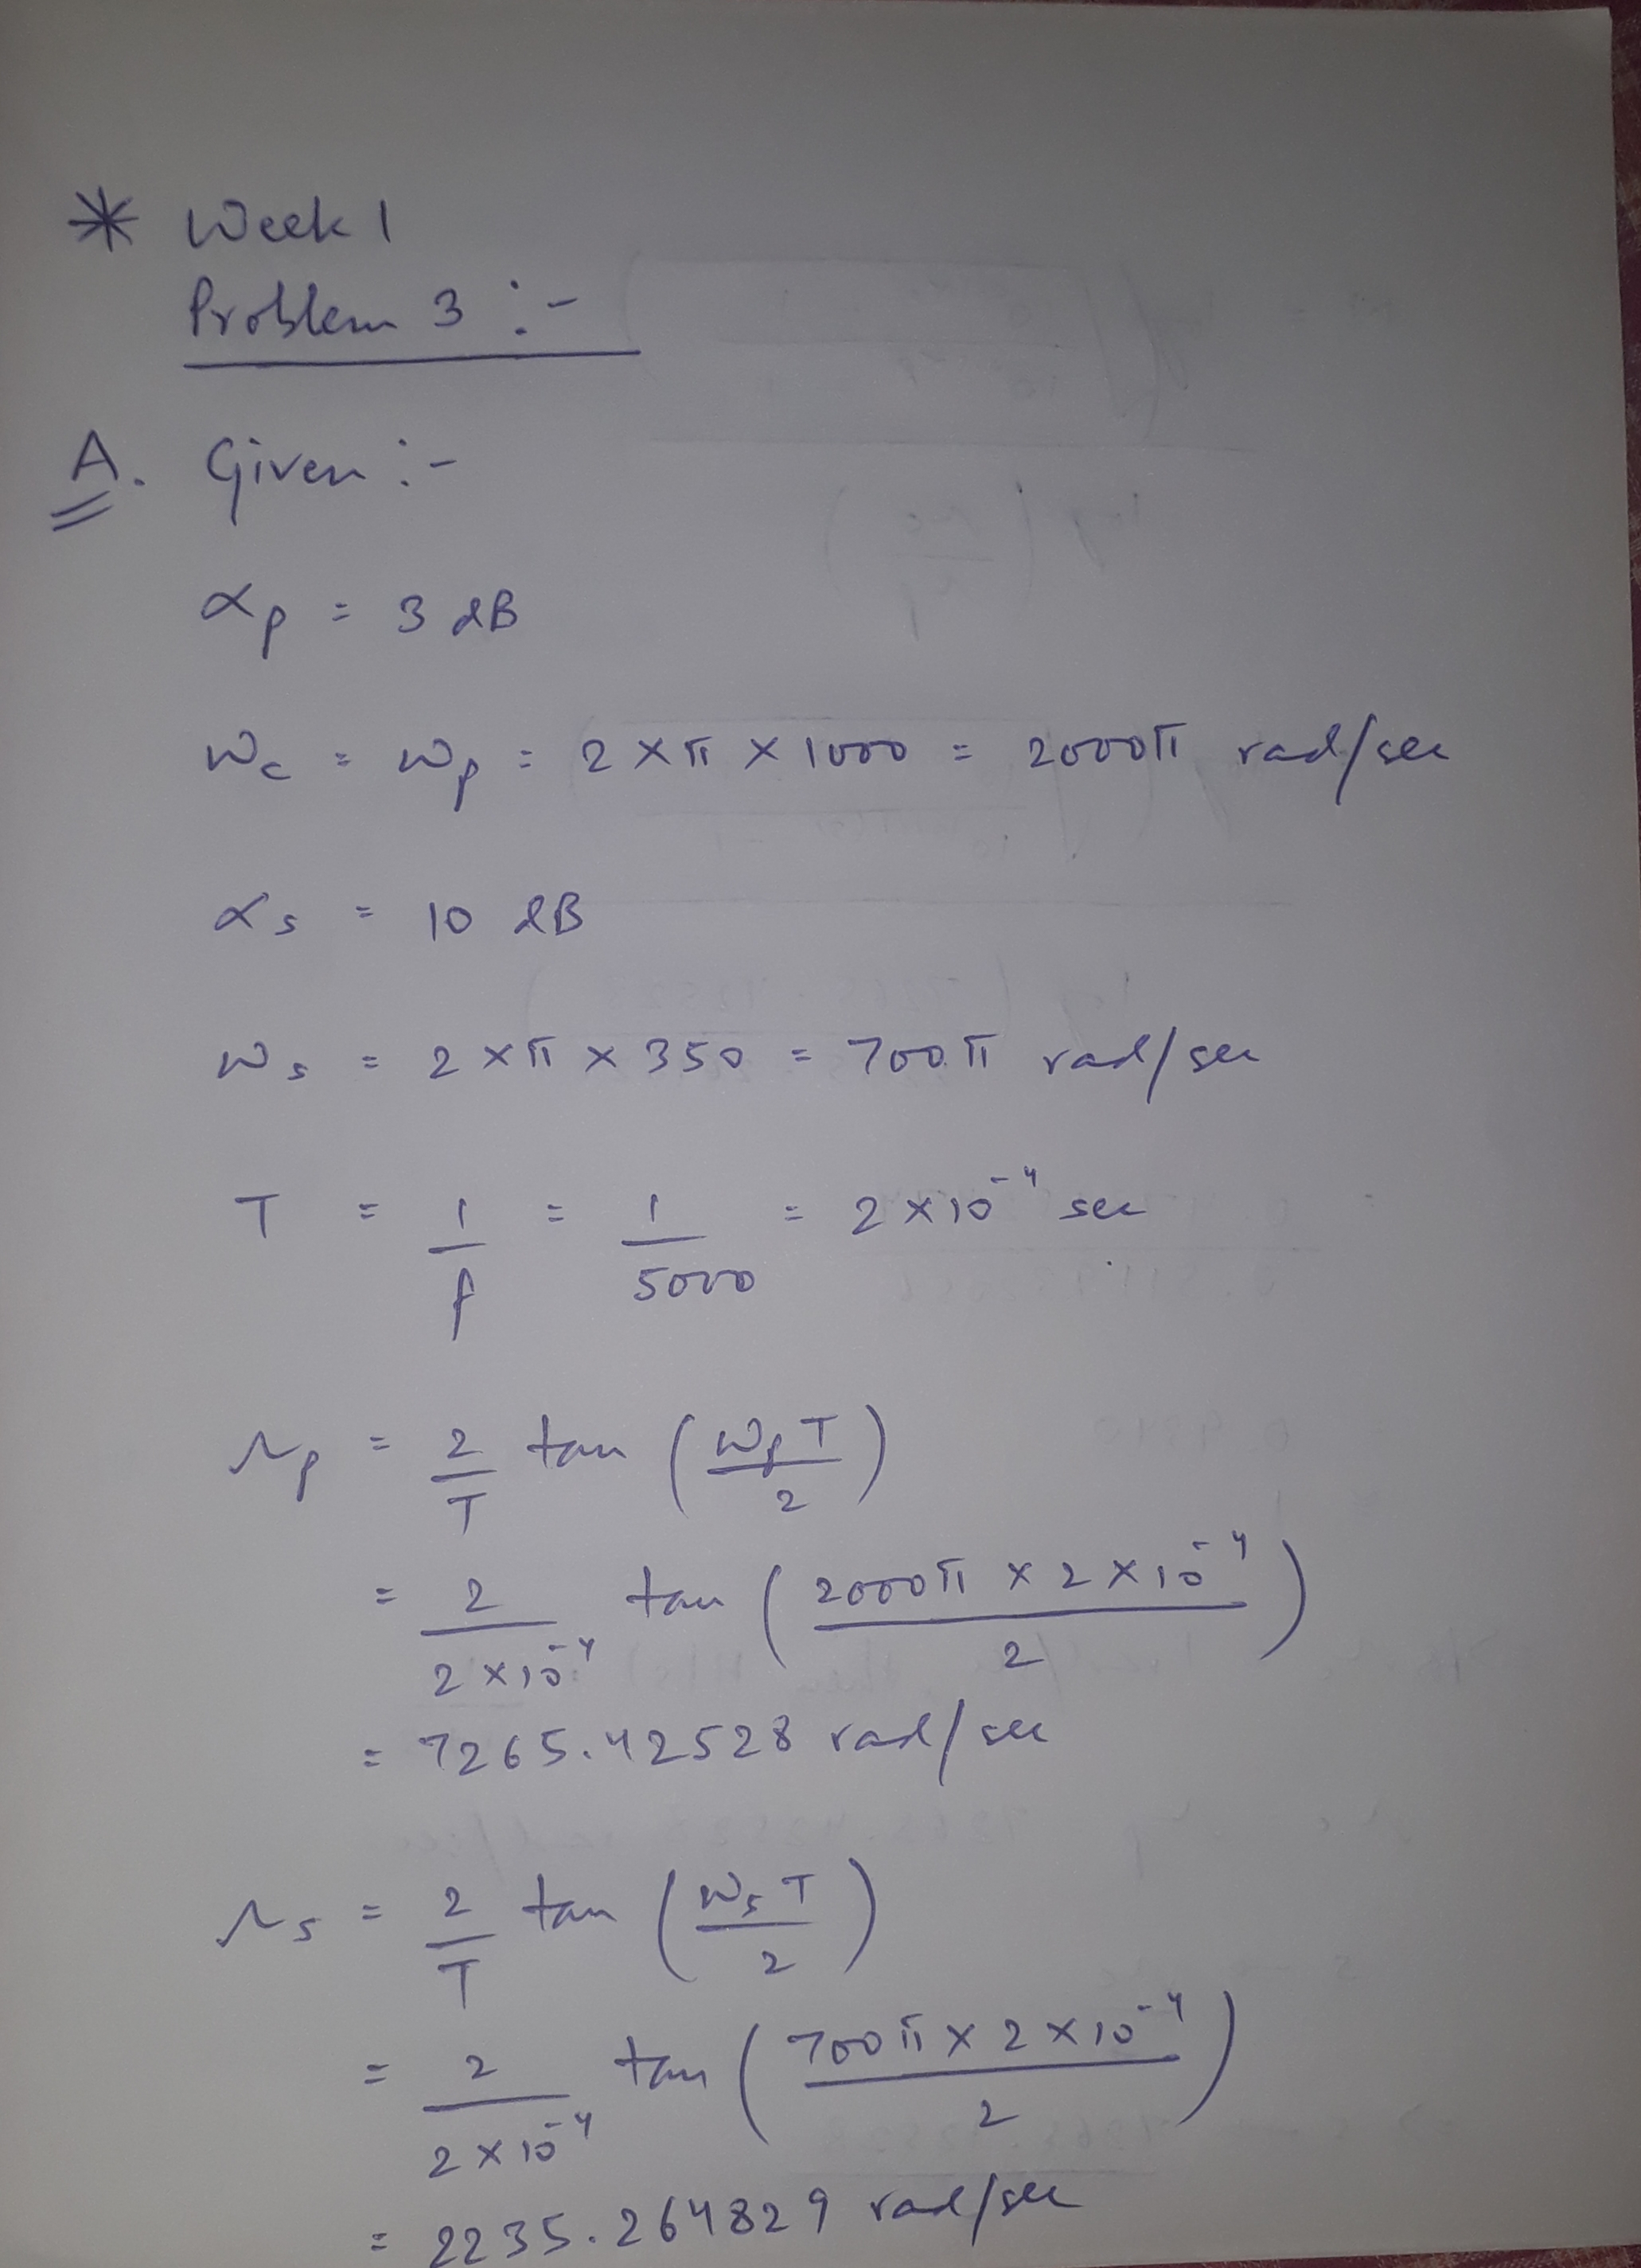 * Week 1
Problem 3 :-
A. Given :-
αp = 3 dB
ωc = ωp = 2 × π × 1000 = 2000π rad/sec
αs = 10 dB
ωs = 2 × π × 350 = 700π rad/sec
T = 1/f = 1/5000 = 2 × 10^-4 sec
Ωp = 2/T tan (ωpT/2)
= 2/(2 × 10^-4) tan (2000π × 2 × 10^-4 / 2)
= 7265.42528 rad/sec
Ωs = 2/T tan (ωsT/2)
= 2/(2 × 10^-4) tan (700π × 2 × 10^-4 / 2)
= 2235.264829 rad/sec